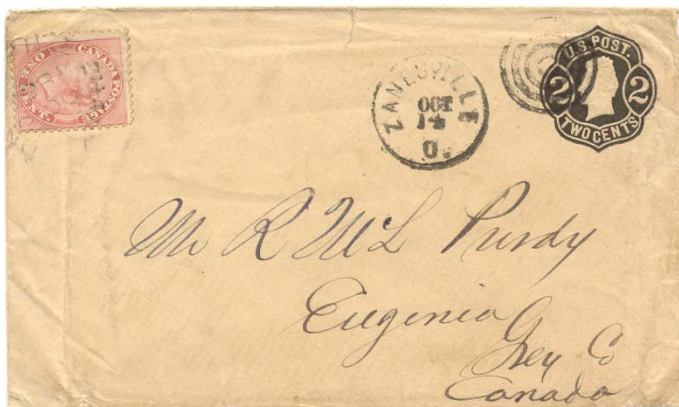 CANADA POSTAGE
ONE CENT
ZANESVILLE
OCT
14
O.
U.S. POST.
2 2
TWO CENTS
Mr R McL Purdy
Eugenia
Grey Co
Canada